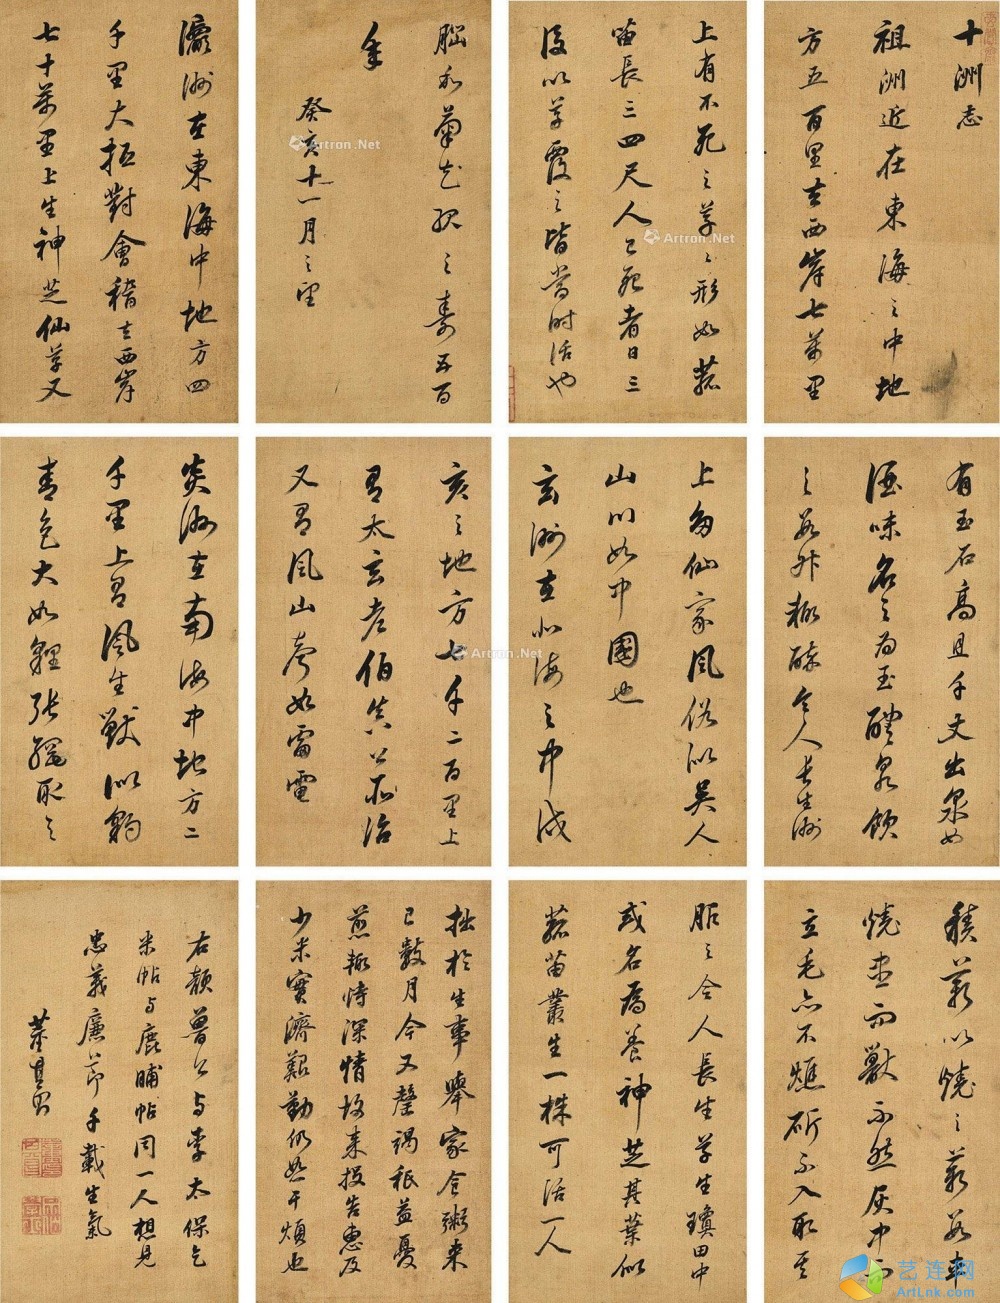 十洲志
祖洲近在東海之中地
方五百里去西岸七萬里
上有不死之草々形如菰
苗長三四尺人已死者日三
沒以草覆之皆當時活也
腦和菊花服之壽五百
年
癸亥十一月之望
瀛洲在東海中地方四
千里大抵對會稽去西岸
七十萬里上生神芝仙草又
有玉石高且千丈出泉如
酒味名之為玉醴泉飲
之數升輒醉令人長生洲
上多仙家風俗似吳人
山川如中國也
玄洲在北海之中戌
亥之地方七千二百里上
有太玄老伯真公所治
又有風山聲如雷電
炎洲在南海中地方二
千里上有風生獸似豹
青色大如貍張網取之
積薪以燒之薪數車
燒盡而獸不然灰中而
立毛亦不燋斫不入取其
服之令人長生草生瓊田中
或名為養神芝其葉似
菰苗叢生一株可活一人
拙於生事舉家食粥來
已數月今又罄竭秖益憂
煎輒恃深情故來投告惠及
少米實濟艱勤仍恕干煩也
右顏魯公與李太保乞
米帖與鹿脯帖同一人想見
忠義廉節千載生氣
董其昌
Artron.Net
Artron.Net
Artron.Net
艺连网
ArtLnk.com